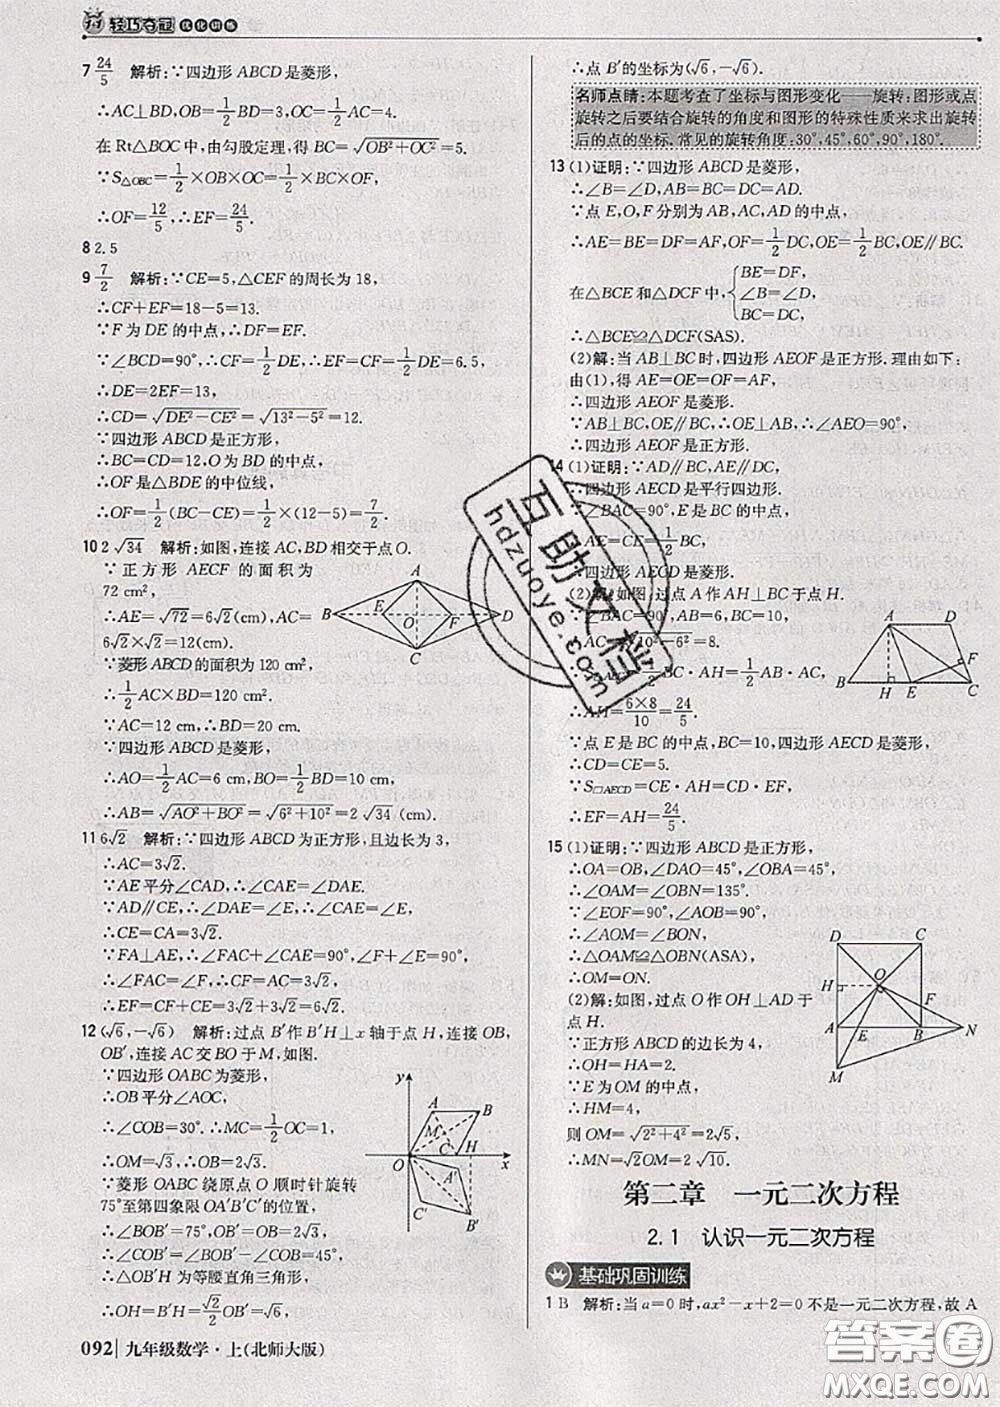 1+1 轻巧夺冠 优化训练
7 24/5 解析:∵四边形 ABCD 是菱形,
∴AC⊥BD,OB=1/2BD=3,OC=1/2AC=4.
在 Rt△BOC 中,由勾股定理,得 BC=√(OB²+OC²)=5.
∵S△OBC=1/2×OB×OC=1/2×BC×OF,
∴OF=12/5,∴EF=24/5.
8 2.5
9 7/2 解析:∵CE=5,△CEF 的周长为 18,
∴CF+EF=18-5=13.
∵F 为 DE 的中点,∴DF=EF.
∵∠BCD=90°,∴CF=1/2DE,∴EF=CF=1/2DE=6.5,
∴DE=2EF=13,
∴CD=√(DE²-CE²)=√(13²-5²)=12.
∵四边形 ABCD 是正方形,
∴BC=CD=12,O 为 BD 的中点,
∴OF 是△BDE 的中位线,
∴OF=1/2(BC-CE)=1/2×(12-5)=7/2.
10 2√34 解析:如图,连接 AC,BD 相交于点 O.
∵正方形 AECF 的面积为
72 cm²,
∴AE=√72=6√2(cm),∴AC=
6√2×√2=12(cm).
∵菱形 ABCD 的面积为 120 cm²,
∴1/2AC×BD=120 cm².
∵AC=12 cm,∴BD=20 cm.
∵四边形 ABCD 是菱形,
∴AO=1/2AC=6 cm,BO=1/2BD=10 cm,
∴AB=√(AO²+BO²)=√(6²+10²)=2√34 (cm).
A
B E O F D
C
11 6√2 解析:∵四边形 ABCD 为正方形,且边长为 3,
∴AC=3√2.
∵AE 平分∠CAD,∴∠CAE=∠DAE.
∵AD∥CE,∴∠DAE=∠E,∴∠CAE=∠E,
∴CE=CA=3√2.
∵FA⊥AE,∴∠FAC+∠CAE=90°,∠F+∠E=90°,
∴∠FAC=∠F,∴CF=AC=3√2,
∴EF=CF+CE=3√2+3√2=6√2.
12 (√6,-√6) 解析:过点 B′作 B′H⊥x 轴于点 H,连接 OB,
OB′,连接 AC 交 BO 于 M,如图.
∵四边形 OABC 为菱形,
∴OB 平分∠AOC,
∴∠COB=30°.∴MC=1/2OC=1,
∴OM=√3,∴OB=2√3.
∵菱形 OABC 绕原点 O 顺时针旋转
75°至第四象限 OA′B′C′的位置,
∴∠BOB′=75°,OB′=OB=2√3,
∴∠COB′=∠BOB′-∠COB=45°,
∴△OB′H 为等腰直角三角形,
∴OH=B′H=√2/2OB′=√6,
y
A B
M
C H
O x
A′
C′
B′
∴点 B′的坐标为(√6,-√6).
名师点睛:本题考查了坐标与图形变化——旋转:图形或点
旋转之后要结合旋转的角度和图形的特殊性质来求出旋转
后的点的坐标.常见的旋转角度:30°,45°,60°,90°,180°.
13 (1)证明:∵四边形 ABCD 是菱形,
∴∠B=∠D,AB=BC=DC=AD.
∵点 E,O,F 分别为 AB,AC,AD 的中点,
∴AE=BE=DF=AF,OF=1/2DC,OE=1/2BC,OE∥BC.
在△BCE 和△DCF 中,{BE=DF,
∠B=∠D,
BC=DC,
∴△BCE≌△DCF(SAS).
(2)解:当 AB⊥BC 时,四边形 AEOF 是正方形.理由如下:
由(1),得 AE=OE=OF=AF,
∴四边形 AEOF 是菱形.
∵AB⊥BC,OE∥BC,∴OE⊥AB,∴∠AEO=90°,
∴四边形 AEOF 是正方形.
14 (1)证明:∵AD∥BC,AE∥DC,
∴四边形 AECD 是平行四边形.
∵∠BAC=90°,E 是 BC 的中点,
∴AE=CE=1/2BC,
∴四边形 AECD 是菱形.
(2)解:如图,过点 A 作 AH⊥BC 于点 H.
∵∠BAC=90°,AB=6,BC=10,
∴AC=√(10²-6²)=8.
∵S△ABC=1/2BC·AH=1/2AB·AC,
∴AH=(6×8)/10=24/5.
∵点 E 是 BC 的中点,BC=10,四边形 AECD 是菱形,
∴CD=CE=5.
∵S□AECD=CE·AH=CD·EF,
∴EF=AH=24/5.
A D
F
B H E C
15 (1)证明:∵四边形 ABCD 是正方形,
∴OA=OB,∠DAO=45°,∠OBA=45°,
∴∠OAM=∠OBN=135°.
∵∠EOF=90°,∠AOB=90°,
∴∠AOM=∠BON,
∴△OAM≌△OBN(ASA),
∴OM=ON.
(2)解:如图,过点 O 作 OH⊥AD 于
点 H.
∵正方形 ABCD 的边长为 4,
∴OH=HA=2.
∵E 为 OM 的中点,
∴HM=4,
则 OM=√(2²+4²)=2√5,
∴MN=√2OM=2√10.
D C
H O
F
A E B N
M
第二章 一元二次方程
2.1 认识一元二次方程
基础巩固训练
1 B 解析:当 a=0 时,ax²-x+2=0 不是一元二次方程,故 A
092 九年级数学·上(北师大版)
互助文档
hdzuoye.com
答案圈
MXQE.COM